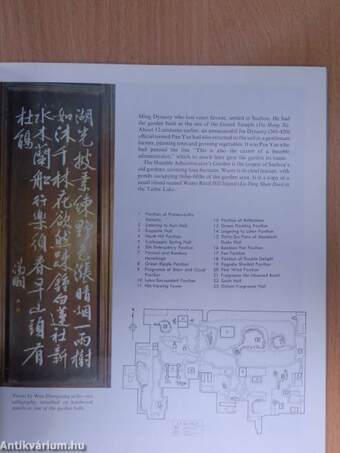 湖光披素練野色漲晴烟一雨樹
如沐千林花欲然踈鐘白蓮社新
水木蘭船行樂須春早山頭有
杜鵑
Poems by Wen Zhengming in his own
calligraphy, inscribed on hardwood
panels in one of the garden halls.
Ming Dynasty who lost court favor, settled in Suzhou. He had
the garden built at the site of the Grand Temple (Da Hong Si).
About 12 centuries earlier, an unsuccessful Jin Dynasty (265-420)
official named Pan Yue had also returned to the soil as a gentleman
farmer, planting trees and growing vegetables. It was Pan who
had penned the line "This is also the career of a humble
administrator," which so much later gave the garden its name.
The Humble Administrator's Garden is the largest of Suzhou's
old gardens, covering four hectares. Water is its chief feature, with
ponds occupying three-fifths of the garden area. It is a copy of a
small island named Water Reed Hill Island (Lu Ding Shan Dao) in
the Taihu Lake.
1 Pavilion of
2 Listening to Rain Hall
3 Loquat Hall
4 North Hill Pavilion
5 Turkscapic Spring Hall
6 Silk Embroidery Pavilion
7 Peonies and Bamboo
8 Green Ripple Pavilion
9 Fragrance of Snow and Cloud
Pavilion
10 Lotus-Surrounded Pavilion
11 Hill-Viewing Tower
12 Pavilion of Reflections
13 Green Floating Pavilion
14 Lingering to Listen Pavilion
15 Thirty-Six Pairs of Mandarin
Ducks Hall
16 Bamboo Hat Pavilion
17 Fan Pavilion
18 Pavilion of Double Delight
19 Pagoda Shaded Pavilion
20 Pine Wind Pavilion
21 Fragrance the Flowered Bank
22 South Hall
23 Distant Fragrance Hall
antikvarium.hu